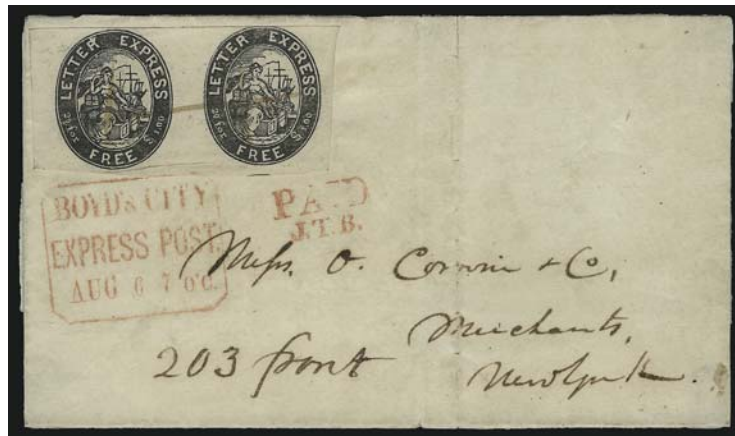 LETTER EXPRESS
FREE
LETTER EXPRESS
FREE
BOYD'S CITY
EXPRESS POST.
AUG 6 7 O'C.
PAID
J.T.B.
Mess. O. Corwin & Co,
Merchants,
203 front
New York.